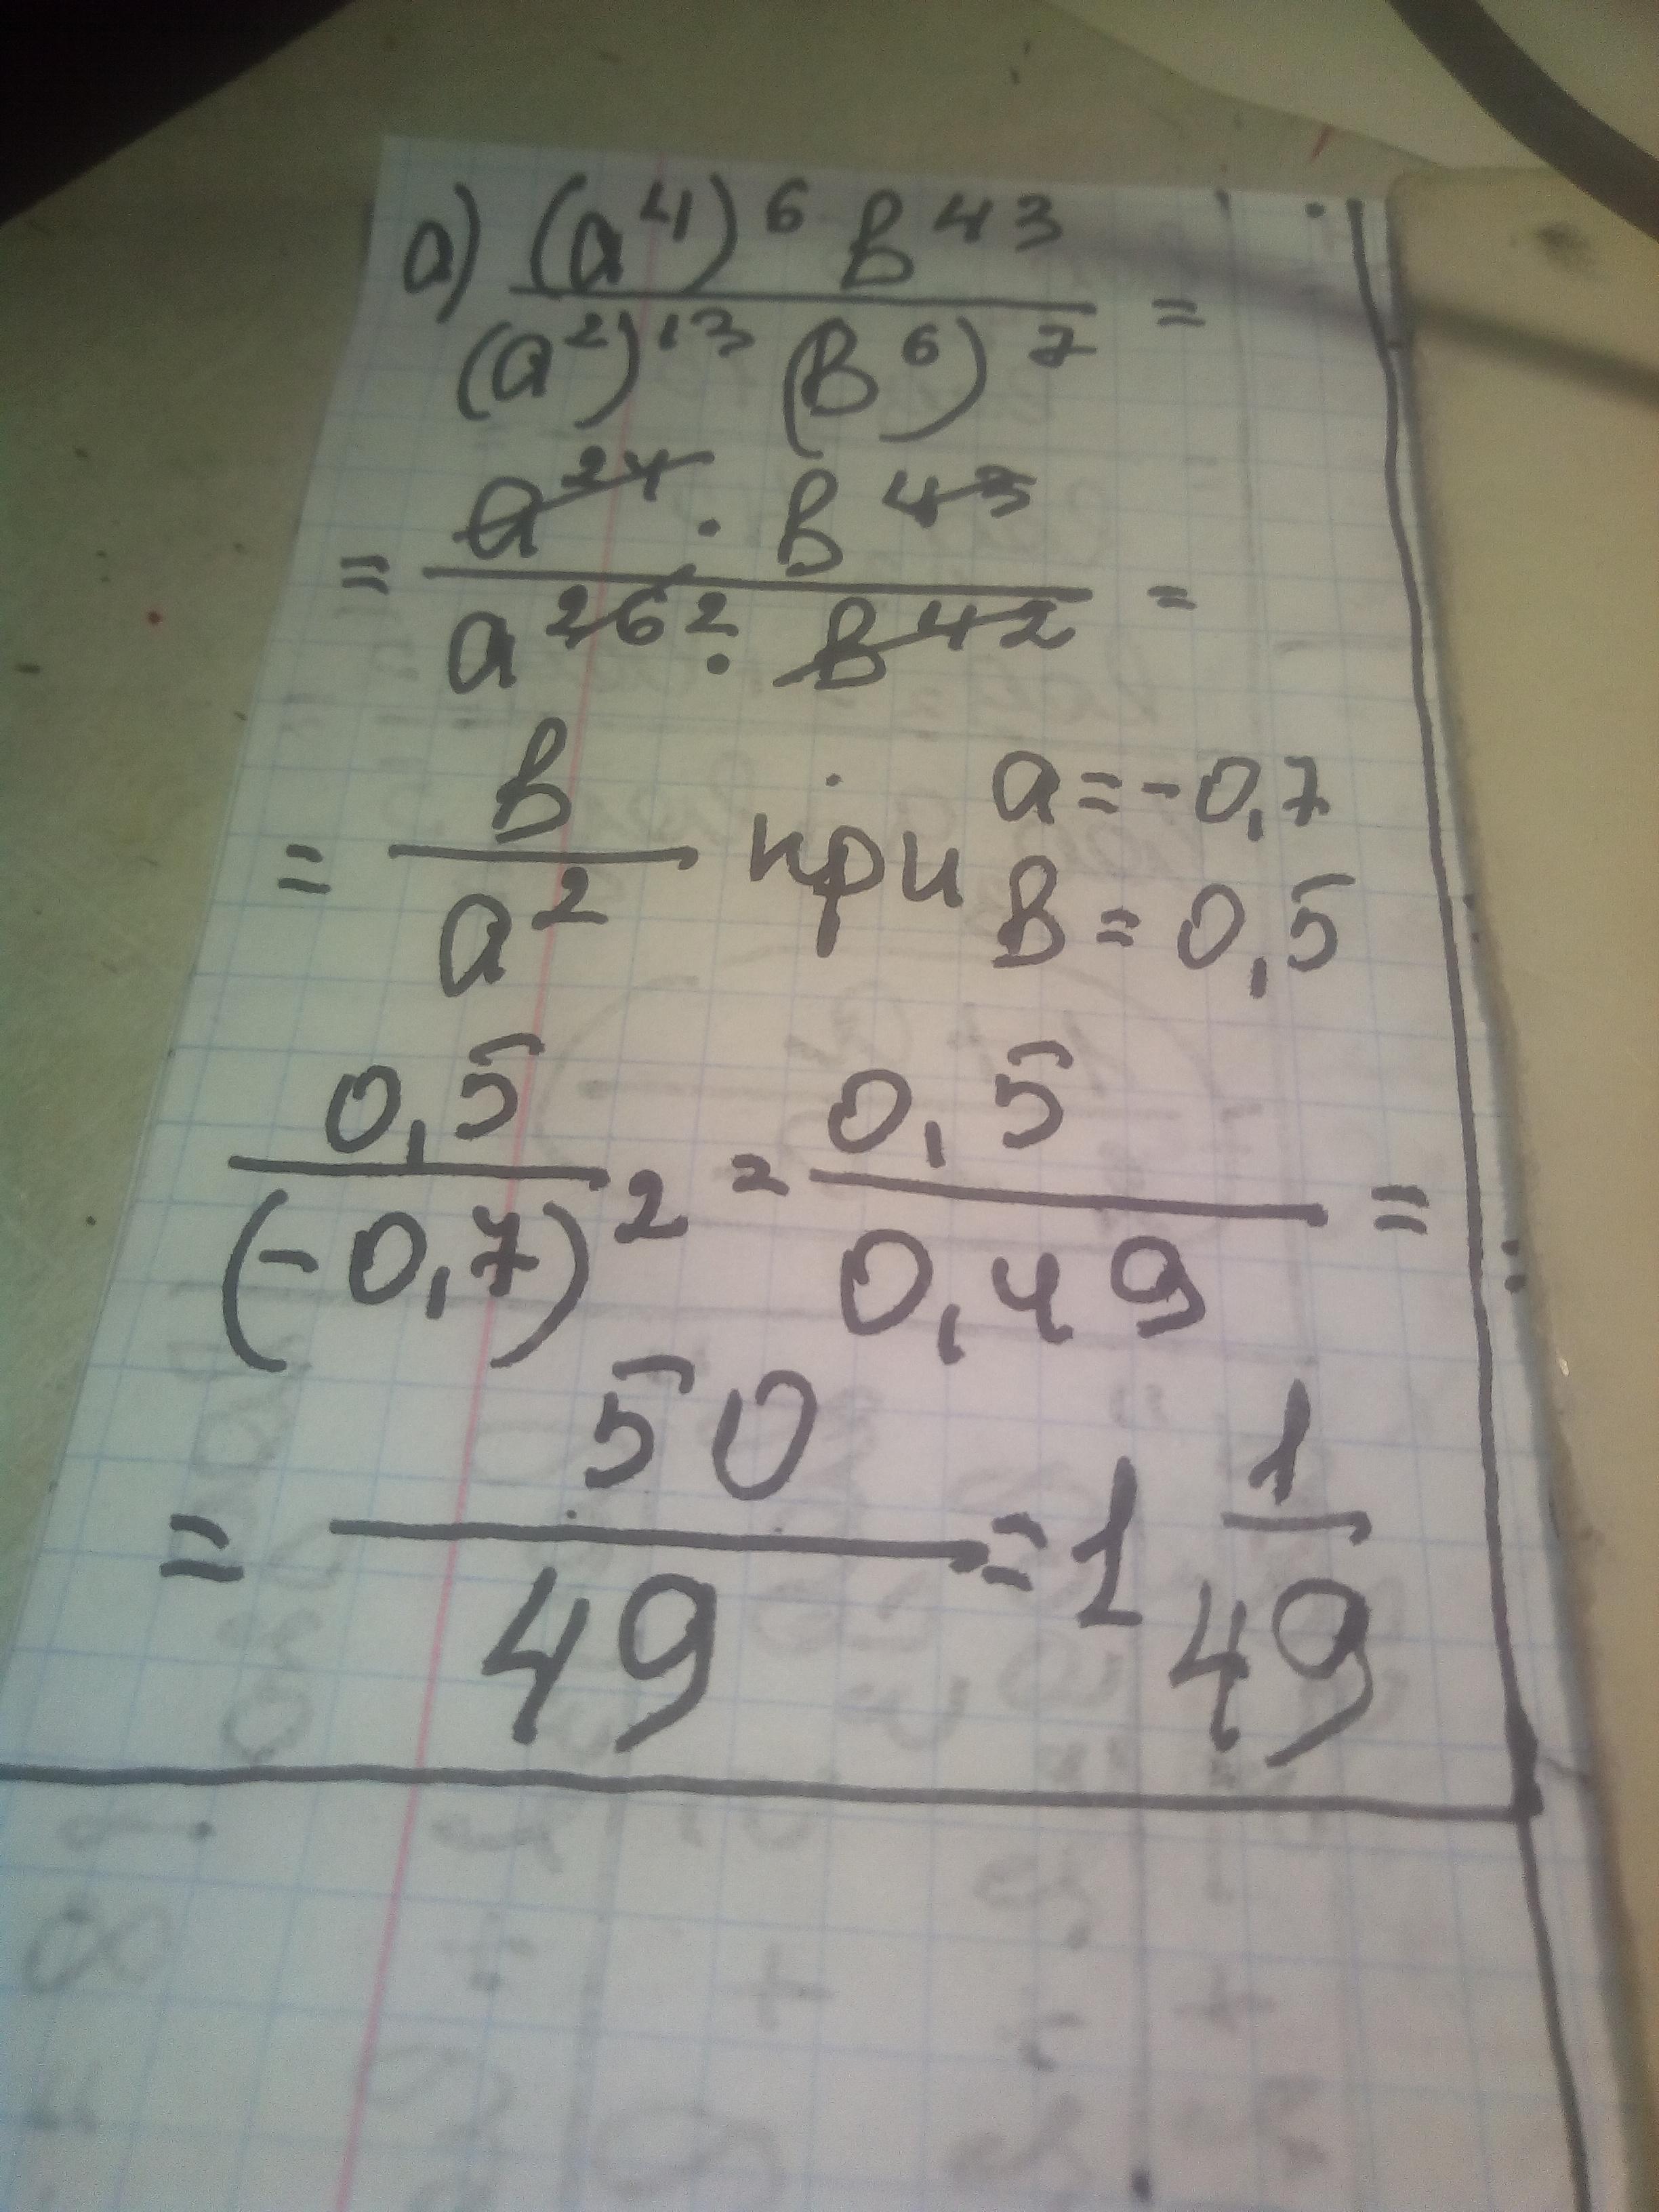 а) (a⁴)⁶ b⁴³ / (a²)¹³ (b⁶)⁷ =
= a²⁴ · b⁴³ / a²⁶ ² · b⁴² =
= b / a² при a = -0,7 b = 0,5
0,5 / (-0,7)² = 0,5 / 0,49 =
= 50 / 49 = 1 1/49